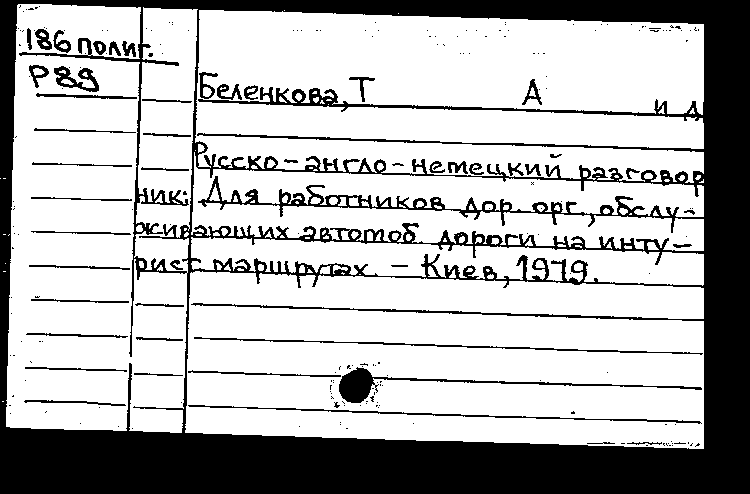 186 полиг.
Р89
Беленкова, Т А и д
Русско-англо-немецкий разговор
ник: Для работников дор. орг., обслу-
живающих автомоб. дороги на инту-
рист. маршрутах. - Киев, 1979.